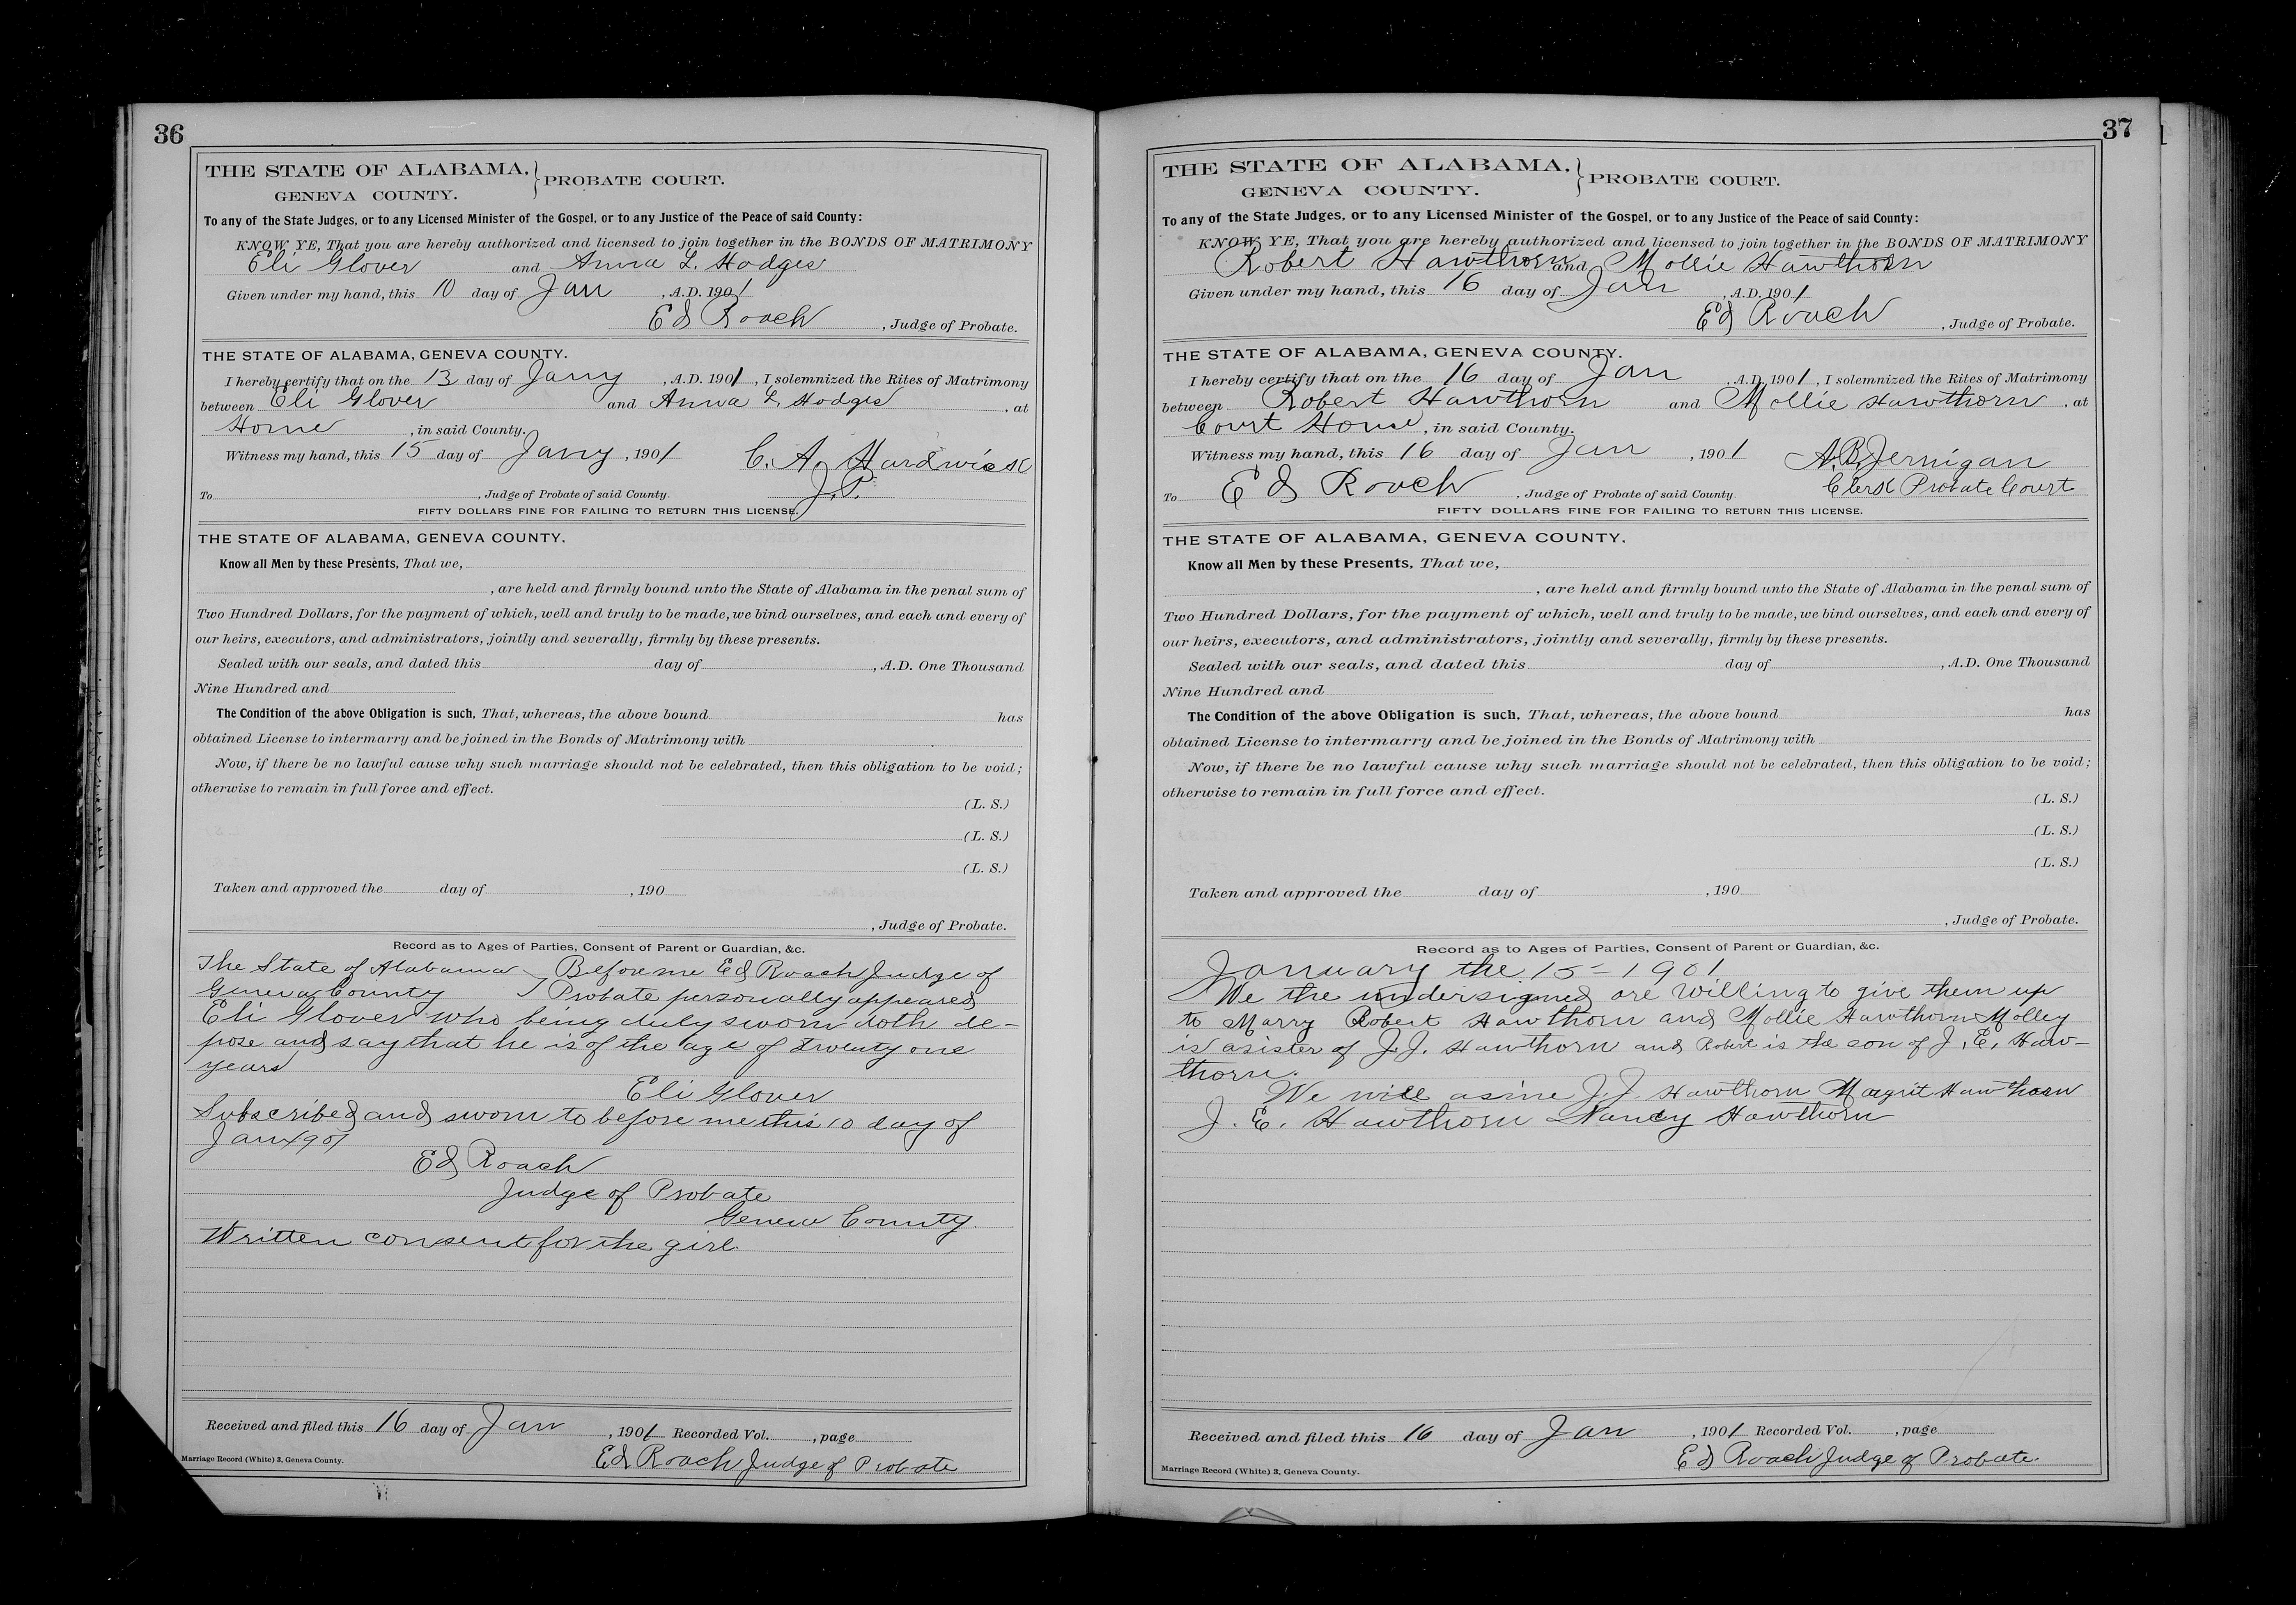 36
THE STATE OF ALABAMA,
GENEVA COUNTY.
} PROBATE COURT.
To any of the State Judges, or to any Licensed Minister of the Gospel, or to any Justice of the Peace of said County:
KNOW YE, That you are hereby authorized and licensed to join together in the BONDS OF MATRIMONY
Eli Glover and Anna L. Hodges
Given under my hand, this 10 day of Jan, A.D. 1901
Ed Roach, Judge of Probate.
THE STATE OF ALABAMA, GENEVA COUNTY.
I hereby certify that on the 13 day of Jany, A.D. 1901, I solemnized the Rites of Matrimony
between Eli Glover and Anna L Hodges, at
Home, in said County.
Witness my hand, this 15 day of Jany, 1901 C. A. Hardwick
To , Judge of Probate of said County. J.P.
FIFTY DOLLARS FINE FOR FAILING TO RETURN THIS LICENSE.
THE STATE OF ALABAMA, GENEVA COUNTY.
Know all Men by these Presents, That we,
, are held and firmly bound unto the State of Alabama in the penal sum of
Two Hundred Dollars, for the payment of which, well and truly to be made, we bind ourselves, and each and every of
our heirs, executors, and administrators, jointly and severally, firmly by these presents.
Sealed with our seals, and dated this day of , A.D. One Thousand
Nine Hundred and
The Condition of the above Obligation is such, That, whereas, the above bound has
obtained License to intermarry and be joined in the Bonds of Matrimony with
Now, if there be no lawful cause why such marriage should not be celebrated, then this obligation to be void;
otherwise to remain in full force and effect.
(L. S.)
(L. S.)
(L. S.)
Taken and approved the day of , 190
, Judge of Probate.
Record as to Ages of Parties, Consent of Parent or Guardian, &c.
The State of Alabama } Before me Ed Roach Judge of
Geneva County } Probate personally appeared
Eli Glover who being duly sworn doth de-
pose and say that he is of the age of twenty one
years
Eli Glover
Subscribed and sworn to before me this 10 day of
Jan 1901
Ed Roach
Judge of Probate
Geneva County
Written consent for the girl.
Received and filed this 16 day of Jan, 1901 Recorded Vol. , page
Ed Roach Judge of Probate
Marriage Record (White) 3, Geneva County.
37
THE STATE OF ALABAMA,
GENEVA COUNTY.
} PROBATE COURT.
To any of the State Judges, or to any Licensed Minister of the Gospel, or to any Justice of the Peace of said County:
KNOW YE, That you are hereby authorized and licensed to join together in the BONDS OF MATRIMONY
Robert Hawthorn and Mollie Hawthorn
Given under my hand, this 16 day of Jan, A.D. 1901
Ed Roach, Judge of Probate.
THE STATE OF ALABAMA, GENEVA COUNTY.
I hereby certify that on the 16 day of Jan, A.D. 1901, I solemnized the Rites of Matrimony
between Robert Hawthorn and Mollie Hawthorn, at
Court House, in said County.
Witness my hand, this 16 day of Jan, 1901 A. B. Jernigan
To Ed Roach, Judge of Probate of said County. Clerk Probate Court
FIFTY DOLLARS FINE FOR FAILING TO RETURN THIS LICENSE.
THE STATE OF ALABAMA, GENEVA COUNTY.
Know all Men by these Presents, That we,
, are held and firmly bound unto the State of Alabama in the penal sum of
Two Hundred Dollars, for the payment of which, well and truly to be made, we bind ourselves, and each and every of
our heirs, executors, and administrators, jointly and severally, firmly by these presents.
Sealed with our seals, and dated this day of , A.D. One Thousand
Nine Hundred and
The Condition of the above Obligation is such, That, whereas, the above bound has
obtained License to intermarry and be joined in the Bonds of Matrimony with
Now, if there be no lawful cause why such marriage should not be celebrated, then this obligation to be void;
otherwise to remain in full force and effect.
(L. S.)
(L. S.)
(L. S.)
Taken and approved the day of , 190
, Judge of Probate.
Record as to Ages of Parties, Consent of Parent or Guardian, &c.
January the 15 - 1901
We the undersigned are willing to give them up
to Marry Robert Hawthorn and Mollie Hawthorn Molley
is a sister of J. J. Hawthorn and Robert is the son of J. E. Haw-
thorn.
We will asine J. J. Hawthorn Margrit Hawthorn
J. E. Hawthorn Nancy Hawthorn
Received and filed this 16 day of Jan, 1901 Recorded Vol. , page
Ed Roach Judge of Probate.
Marriage Record (White) 3, Geneva County.